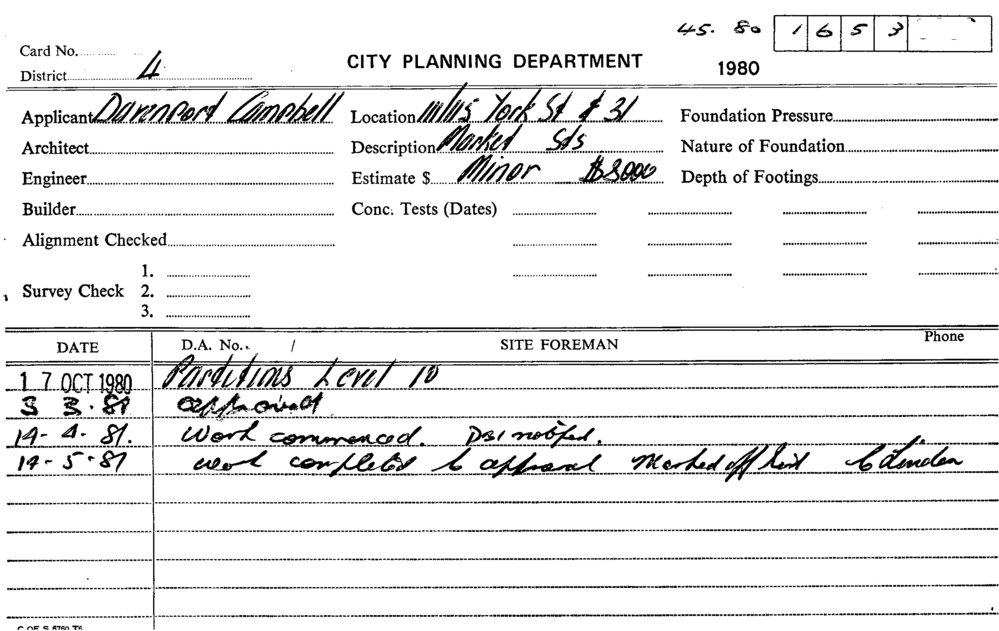 45. 80 1 6 5 3
Card No.
District 4
CITY PLANNING DEPARTMENT
1980
Applicant Davenport Campbell
Location 111/115 York St & 31
Foundation Pressure
Architect
Description Market Sts
Nature of Foundation
Engineer
Estimate $ Minor $8000
Depth of Footings
Builder
Conc. Tests (Dates)
Alignment Checked
1.
Survey Check 2.
3.
DATE
D.A. No. /
SITE FOREMAN
Phone
17 OCT 1980 Partitions Level 10
3 3. 81 approved
14- 4. 81. Work commenced. DSI notified.
14-5-81 work completed to approval Marked off list
C OF S 6760 T6